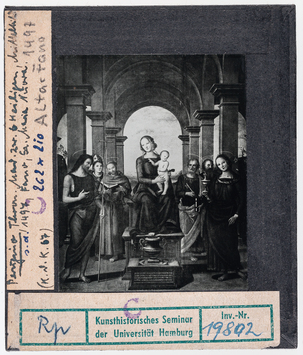 Perugino Thron. Mad. zw. 6 Heiligen,
s. d. 1497, Fano, S. Maria Nuova. 1497
262 x 210 Altar Fano
(K. d. K. 67)
Rp
Kunsthistorisches Seminar
der Universität Hamburg
Inv.-Nr.
19802